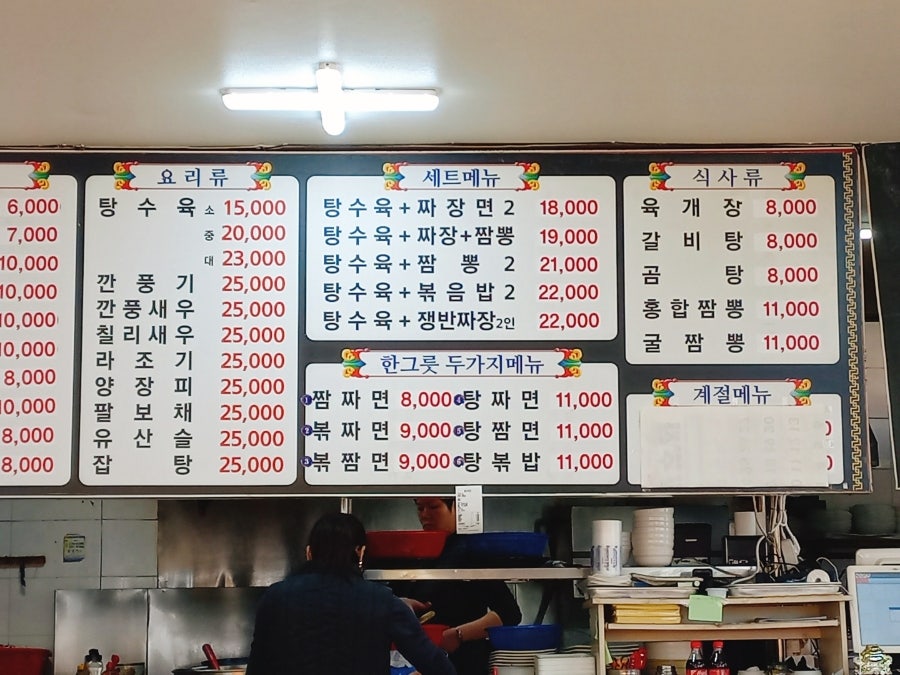 6,000
7,000
10,000
10,000
10,000
10,000
8,000
10,000
8,000
8,000
요리류
탕수육 소 15,000
중 20,000
대 23,000
깐풍기 25,000
깐풍새우 25,000
칠리새우 25,000
라조기 25,000
양장피 25,000
팔보채 25,000
유산슬 25,000
잡탕 25,000
세트메뉴
탕수육+짜장면2 18,000
탕수육+짜장+짬뽕 19,000
탕수육+짬뽕2 21,000
탕수육+볶음밥2 22,000
탕수육+쟁반짜장2인 22,000
한그릇 두가지메뉴
1 짬짜면 8,000 4 탕짜면 11,000
2 볶짜면 9,000 5 탕짬면 11,000
3 볶짬면 9,000 6 탕볶밥 11,000
식사류
육개장 8,000
갈비탕 8,000
곰탕 8,000
홍합짬뽕 11,000
굴짬뽕 11,000
계절메뉴